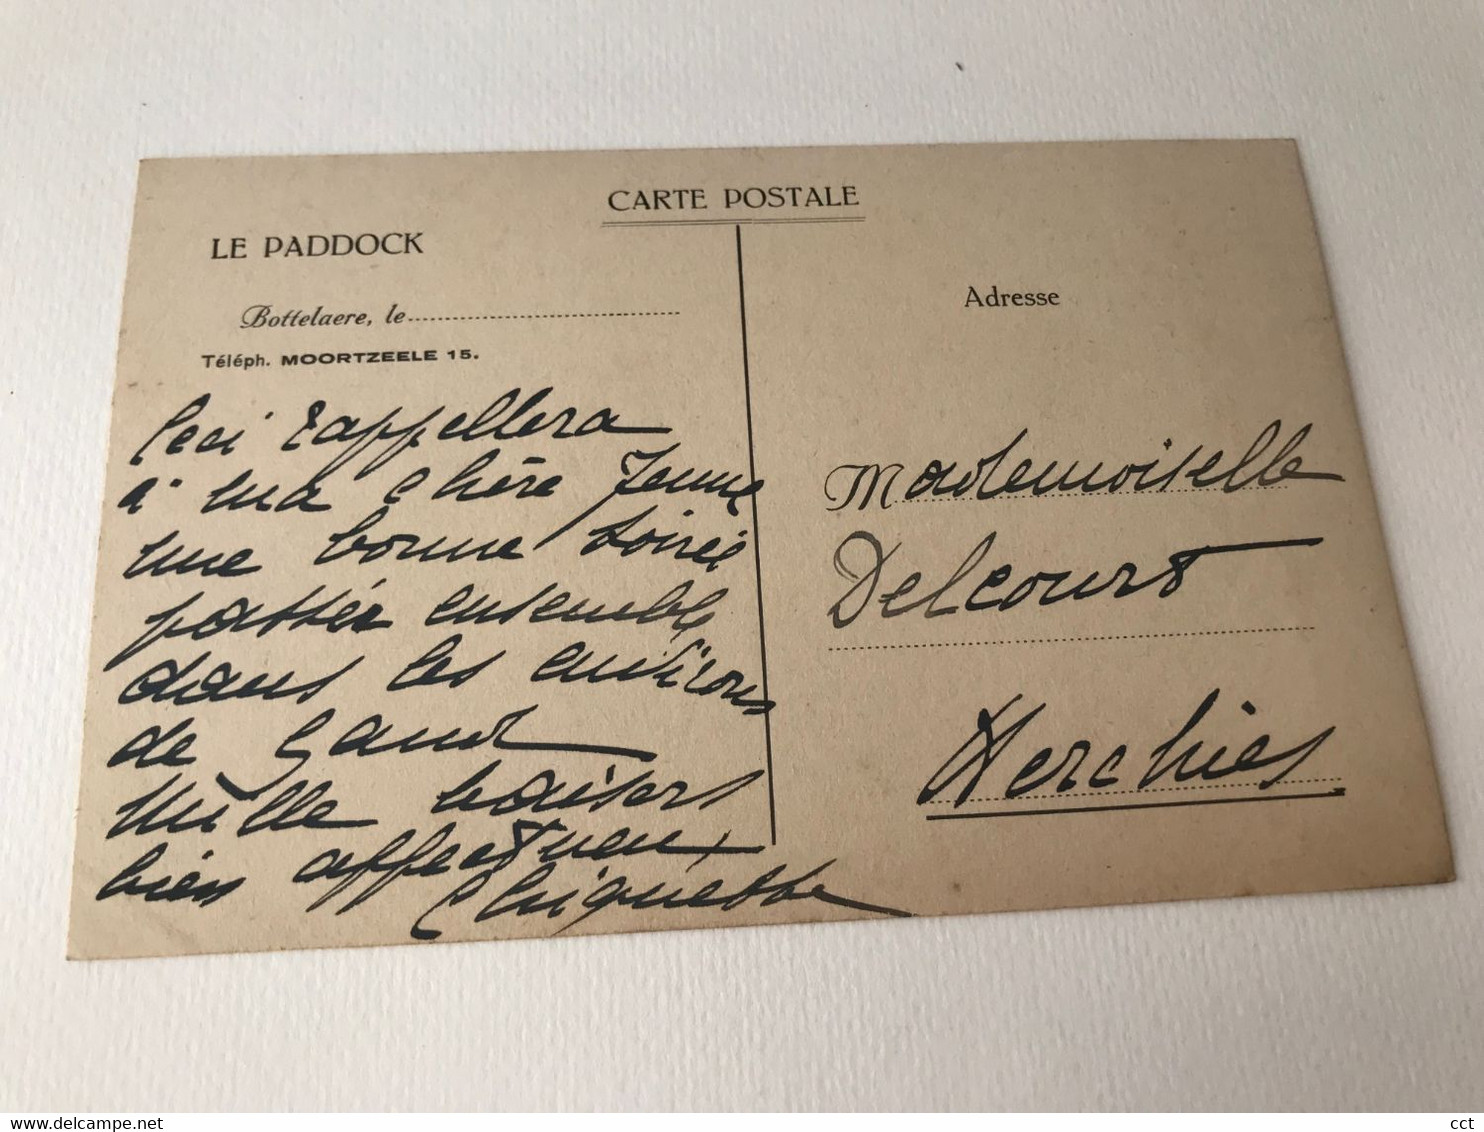 CARTE POSTALE
LE PADDOCK
Bottelaere, le
Téléph. MOORTZEELE 15.
Ceci rappellera
à ma chère Jenne
une bonne soirée
passée ensemble
dans les environs
de Gand
Mille baisers
bien affectueux
Chiquette
Adresse
Mademoiselle
Delcourt
Herchies
cct